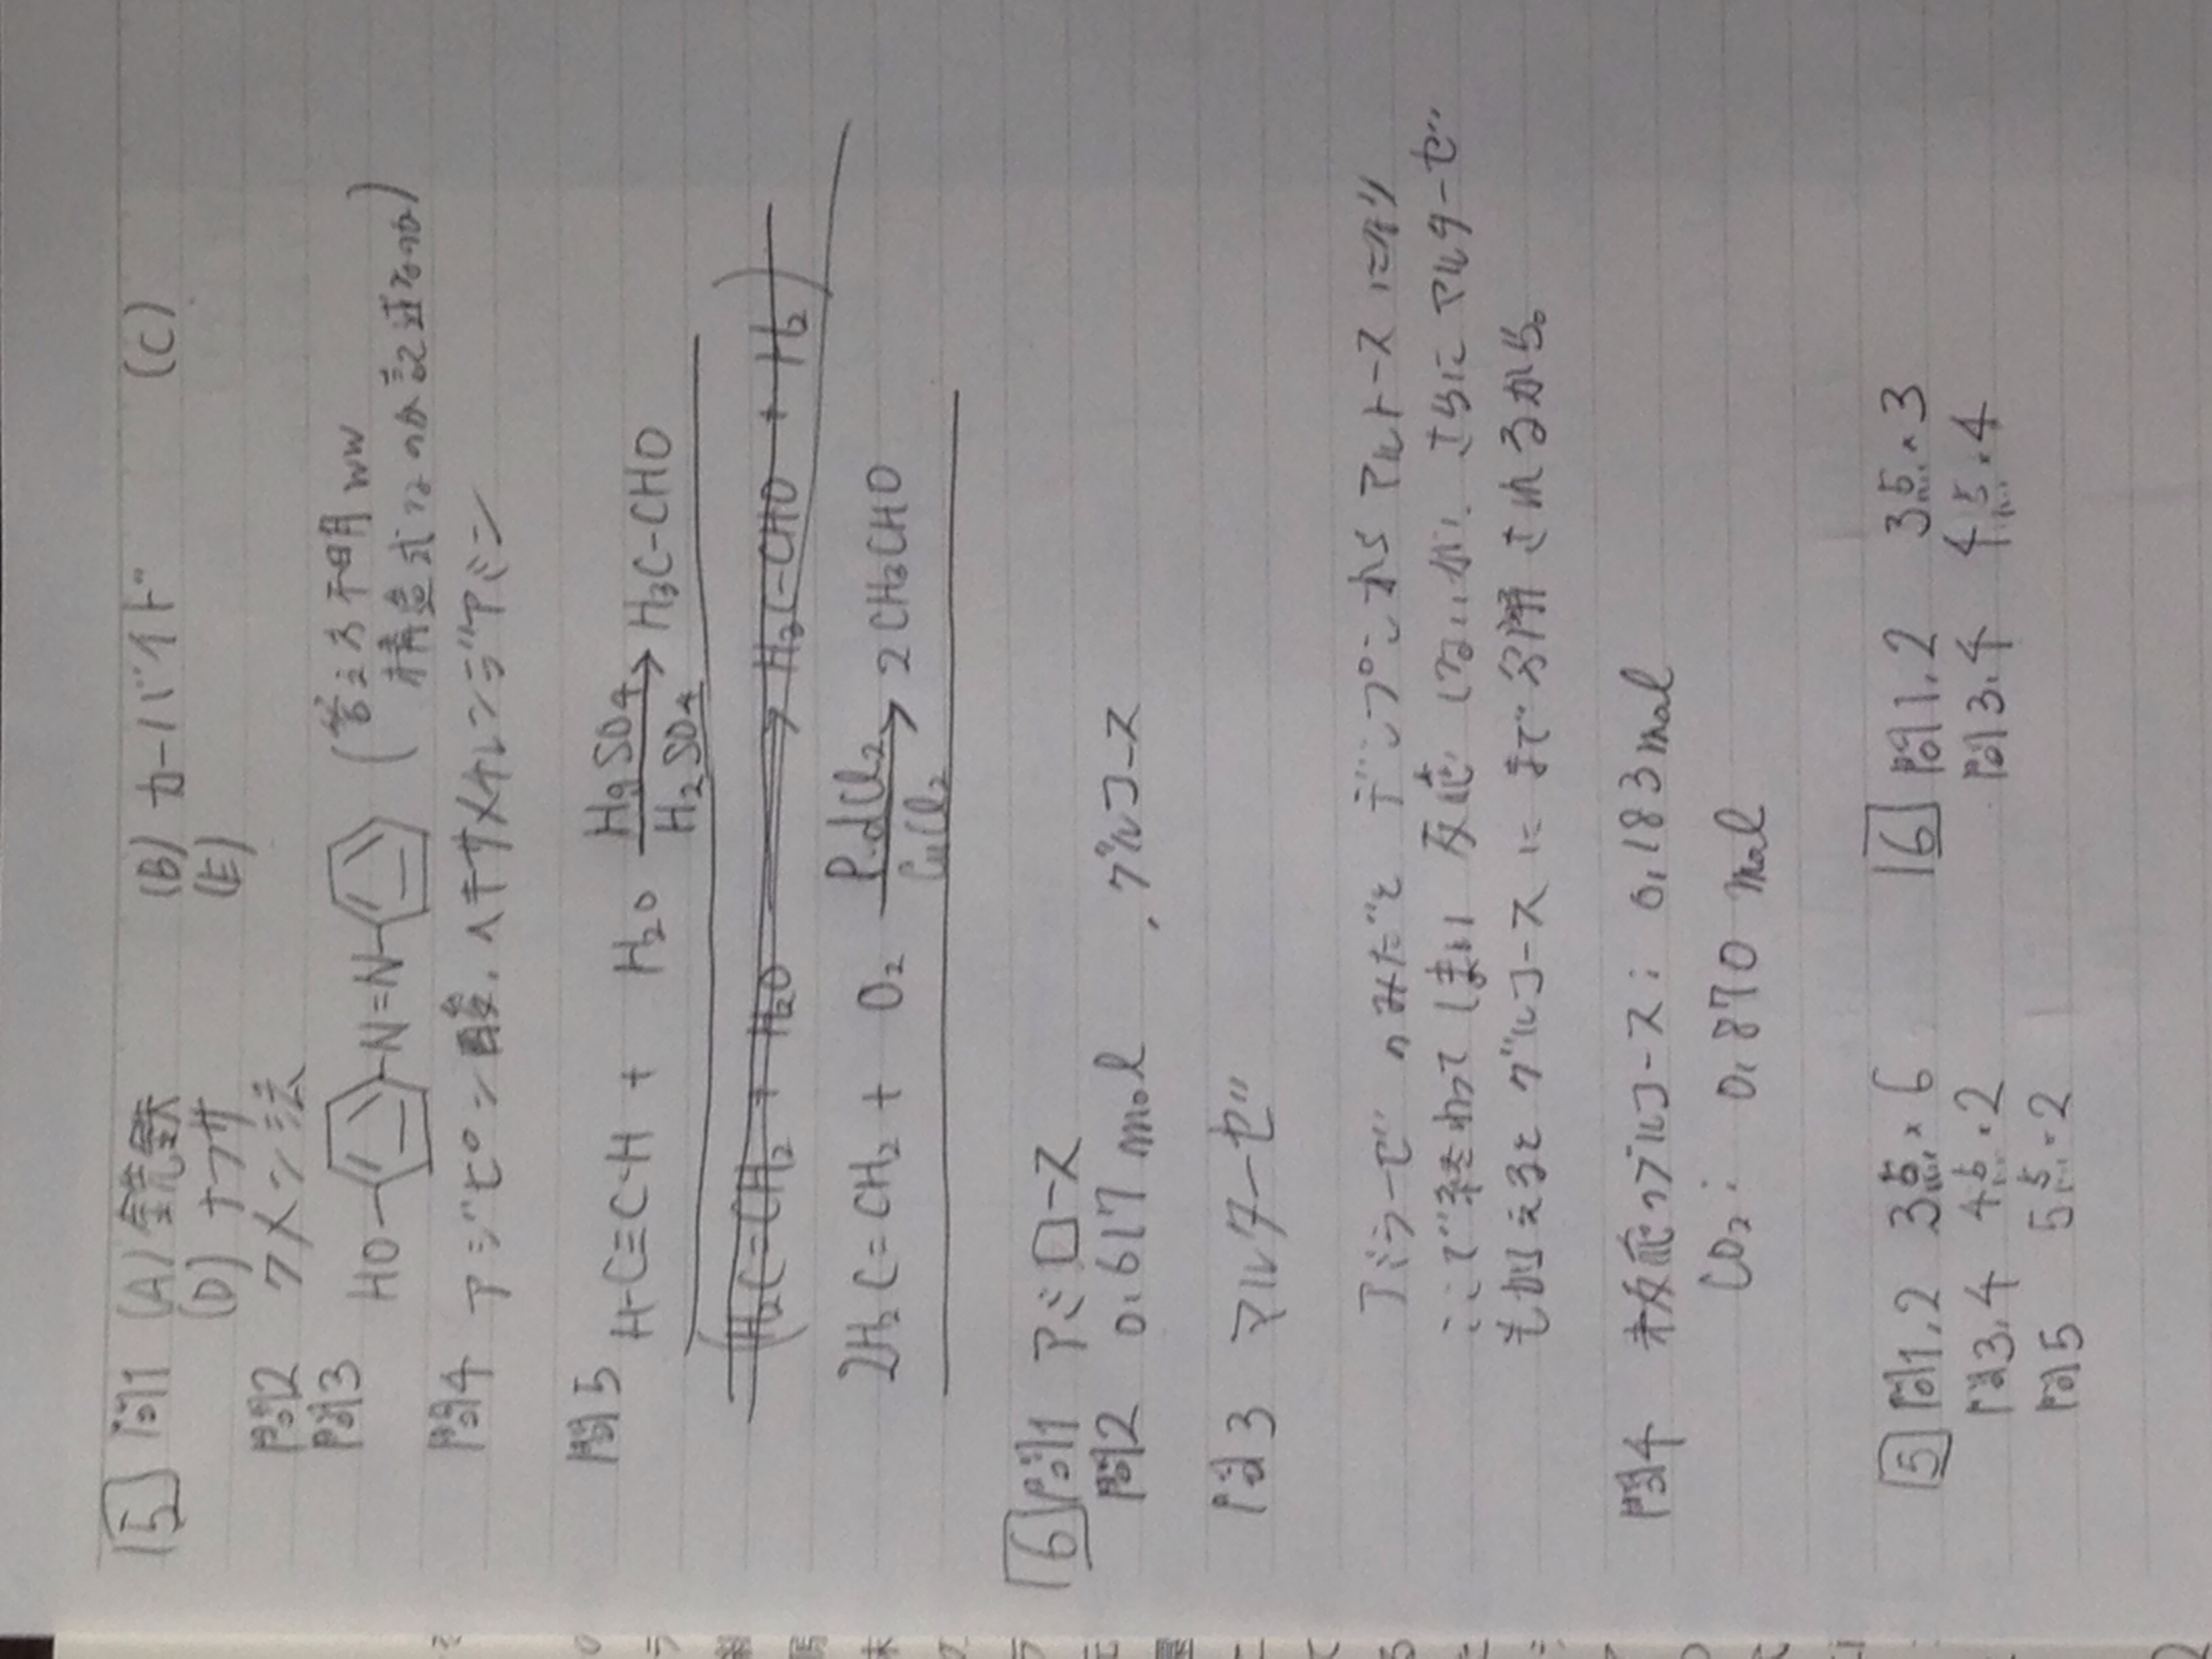 5 問1 (A) 銑鉄 (B) カーバイド (C)
(D) ナフサ (E)
問2 クメン法
問3 HO- -N=N- (答え方不明ww
構造式なのか記述なのか)
問4 アジピン酸、ヘキサメチレンジアミン
問5
H-C≡C-H + H₂O HgSO₄ → H₃C-CHO
H₂SO₄
(H₂C=CH₂ + H₂O → H₃C-CHO + H₂)
2H₂C=CH₂ + O₂ PdCl₂ → 2CH₃CHO
CuCl₂
6 問1 アミロース
問2 0.617mol
問3 マルターゼ、グルコース
アミラーゼのみだとデンプンからマルトースになり
ここで終わってしまい反応しないが、さらにマルターゼ
も加えるとグルコースにまで分解されるから。
問4 未反応グルコース: 0.183mol
CO₂: 0.870mol
5 問1,2 3点×6 6 問1,2 3点×3
問3,4 4点×2 問3,4 4点×4
問5 5点×2